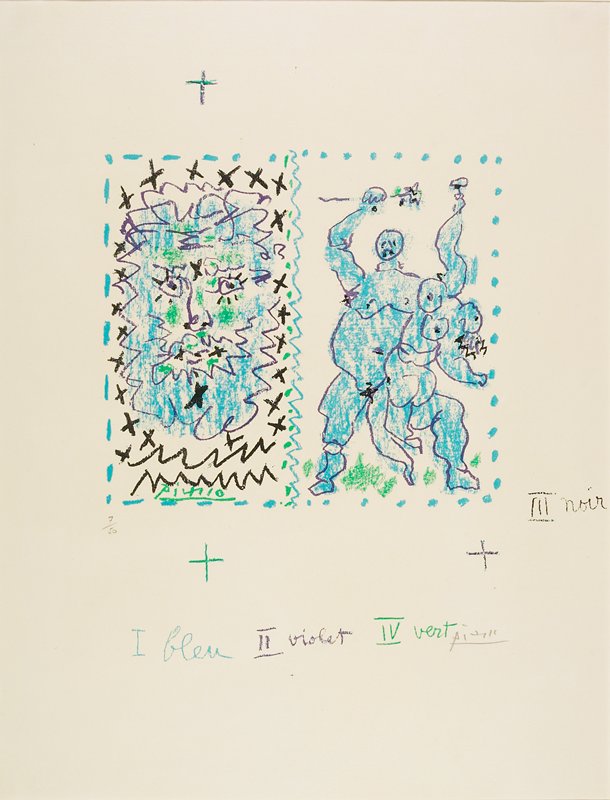 Picasso
7/50
III noir
I bleu II violet IV vert Picasso